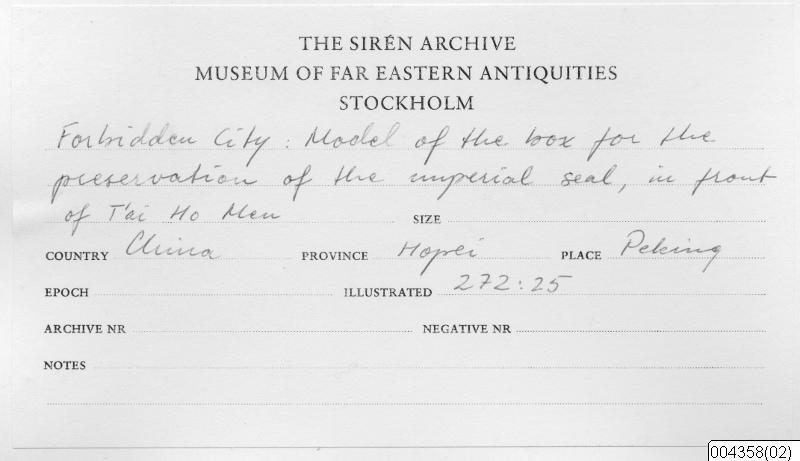 THE SIRÉN ARCHIVE
MUSEUM OF FAR EASTERN ANTIQUITIES
STOCKHOLM
Forbidden City: Model of the box for the
preservation of the imperial seal, in front
of T'ai Ho Men SIZE
COUNTRY China PROVINCE Hopei PLACE Peking
EPOCH ILLUSTRATED 272:25
ARCHIVE NR NEGATIVE NR
NOTES
004358(02)